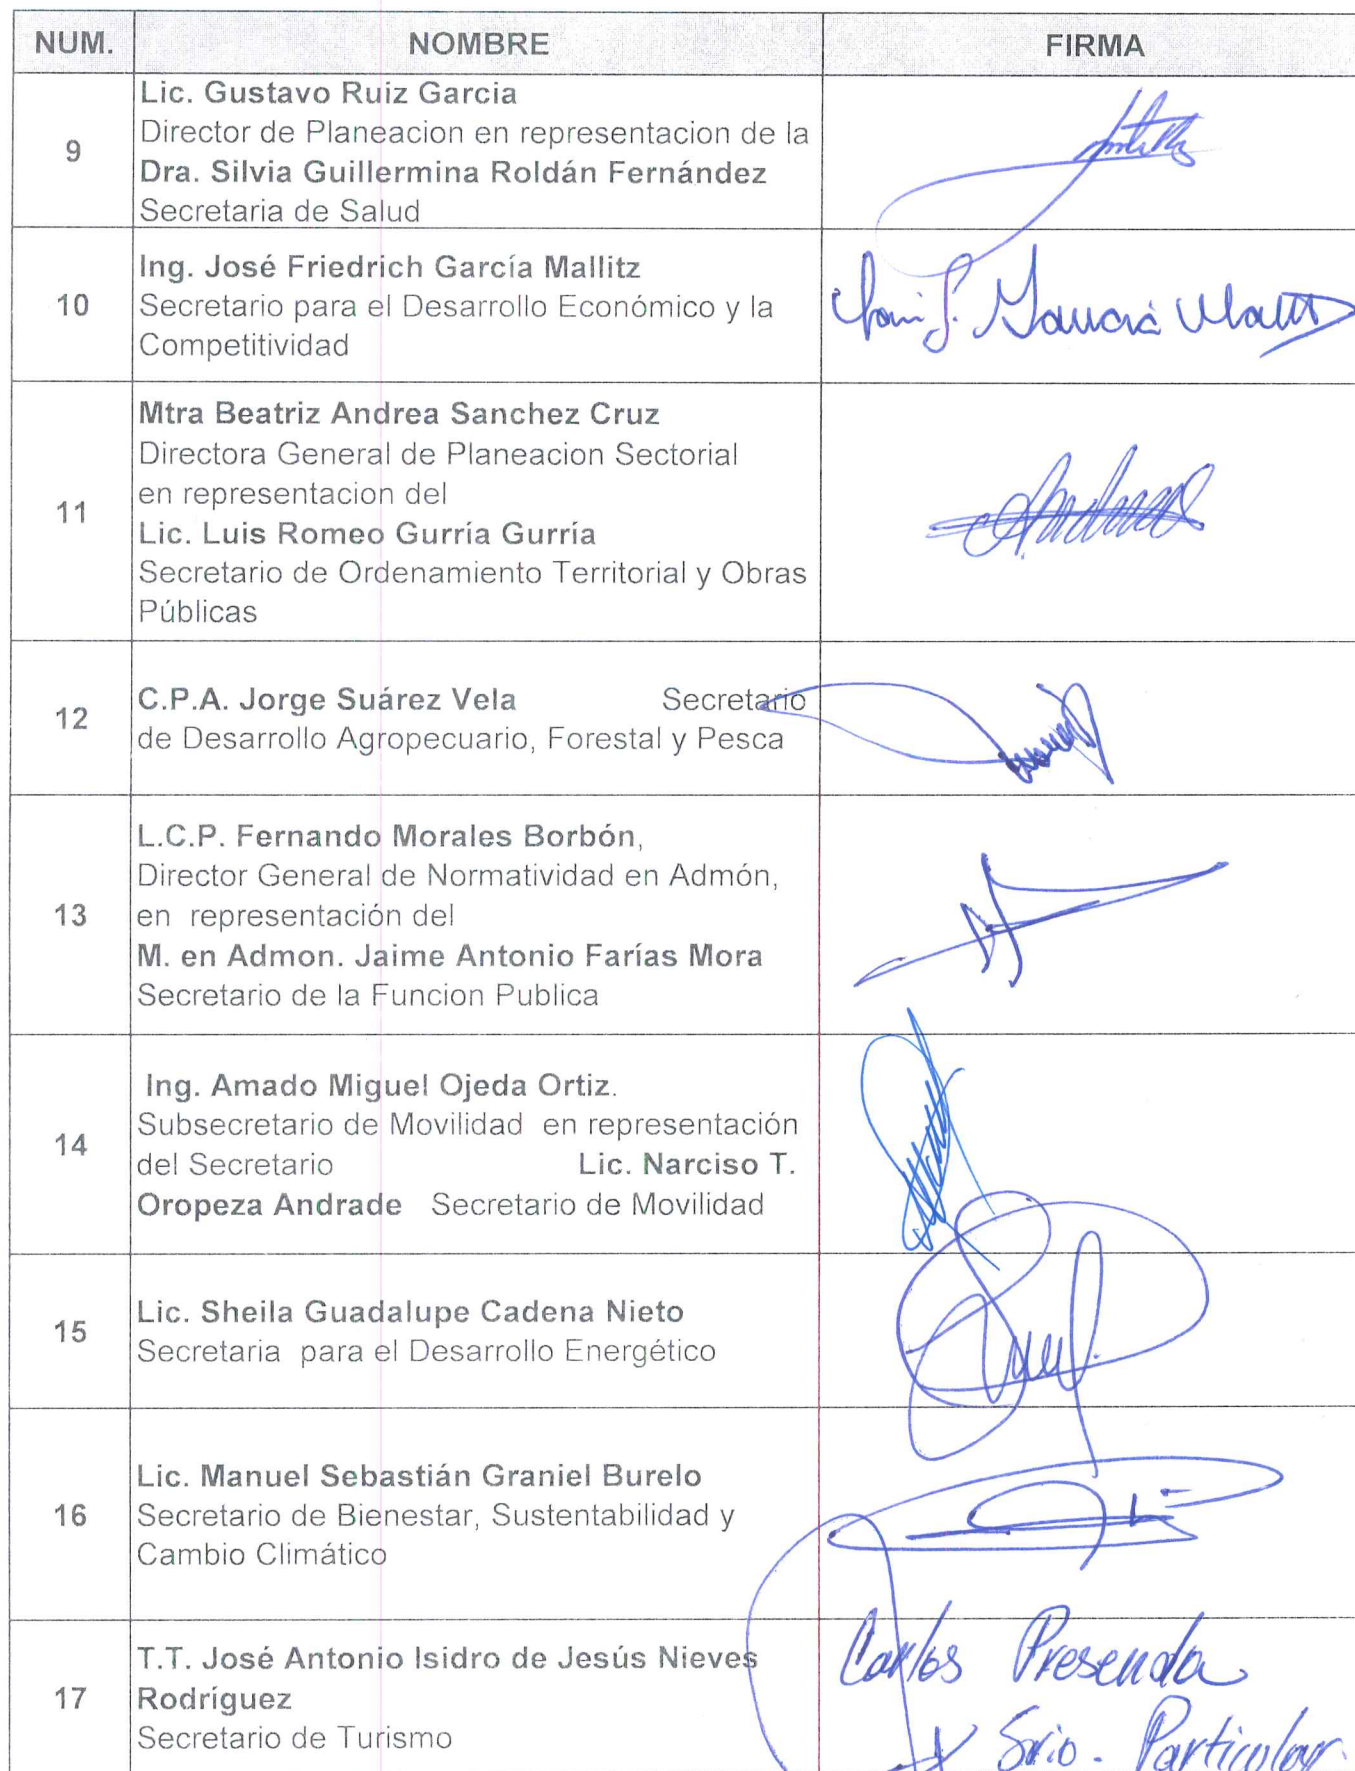 NUM. NOMBRE FIRMA
Lic. Gustavo Ruiz Garcia
Director de Planeacion en representacion de la
9
Dra. Silvia Guillermina Roldán Fernández
Secretaria de Salud
Ing. José Friedrich García Mallitz
10 Secretario para el Desarrollo Económico y la
Competitividad
Mtra Beatriz Andrea Sanchez Cruz
Directora General de Planeacion Sectorial
en representacion del
11
Lic. Luis Romeo Gurría Gurría
Secretario de Ordenamiento Territorial y Obras
Públicas
C.P.A. Jorge Suárez Vela Secretario
12
de Desarrollo Agropecuario, Forestal y Pesca
L.C.P. Fernando Morales Borbón,
Director General de Normatividad en Admón,
13 en representación del
M. en Admon. Jaime Antonio Farías Mora
Secretario de la Funcion Publica
Ing. Amado Miguel Ojeda Ortiz.
Subsecretario de Movilidad en representación
14
del Secretario Lic. Narciso T.
Oropeza Andrade Secretario de Movilidad
Lic. Sheila Guadalupe Cadena Nieto
15
Secretaria para el Desarrollo Energético
Lic. Manuel Sebastián Graniel Burelo
16 Secretario de Bienestar, Sustentabilidad y
Cambio Climático
T.T. José Antonio Isidro de Jesús Nieves
17 Rodríguez
Secretario de Turismo
Carlos Presenda
Srio. Particular.